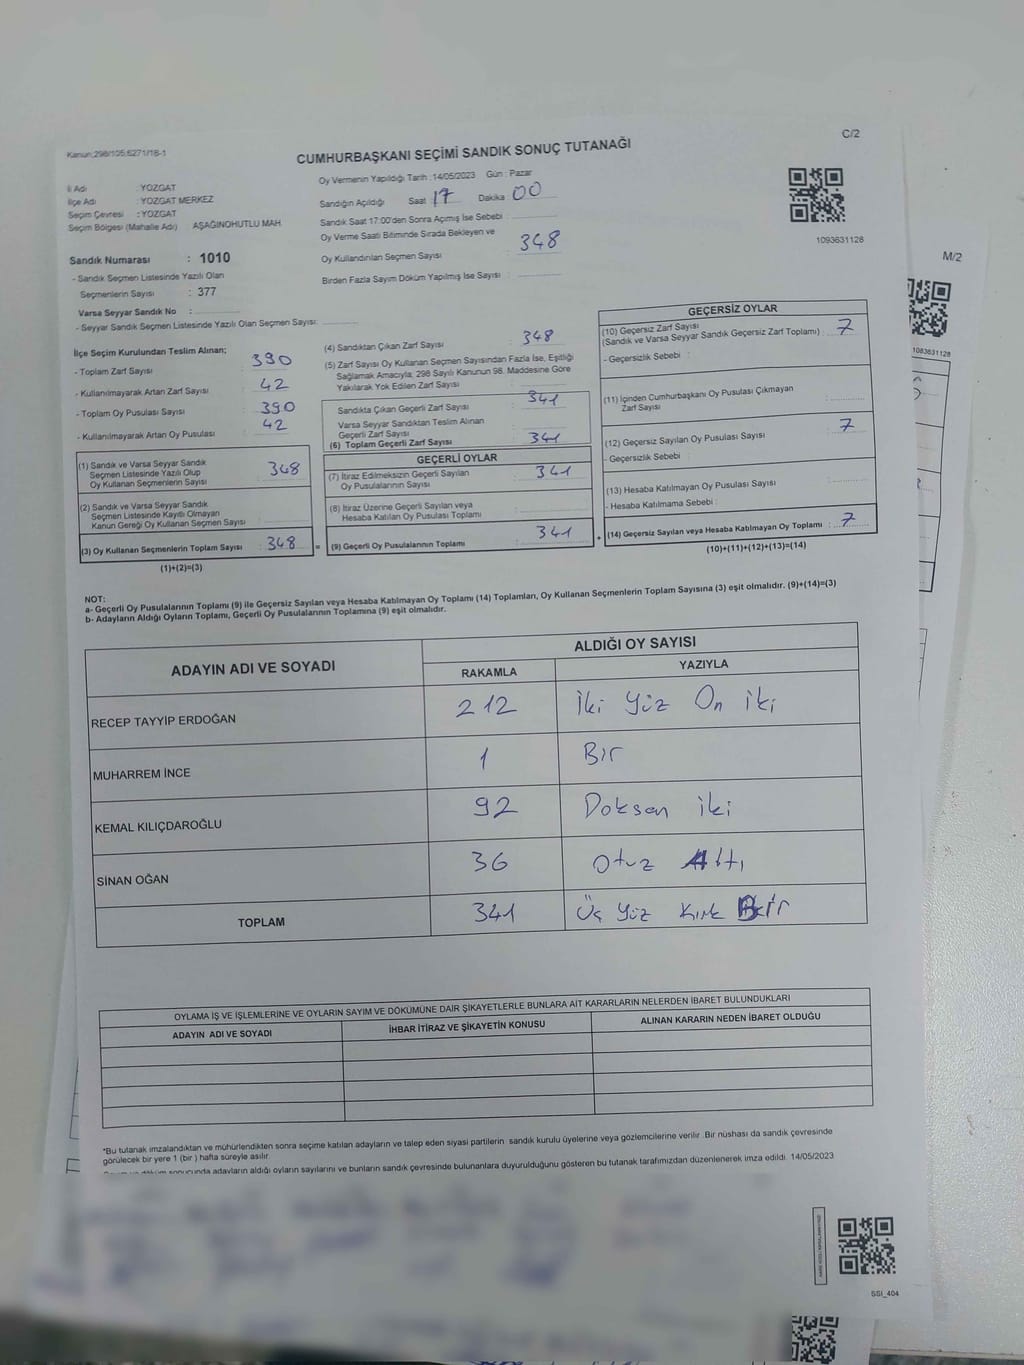 Kanun:298/105,6271/18-1
C/2
CUMHURBAŞKANI SEÇİMİ SANDIK SONUÇ TUTANAĞI
Oy Vermenin Yapıldığı Tarih :14/05/2023 Gün : Pazar
İl Adı : YOZGAT
İlçe Adı : YOZGAT MERKEZ
Seçim Çevresi : YOZGAT
Seçim Bölgesi (Mahalle Adı) AŞAĞINOHUTLU MAH.
Sandığın Açıldığı Saat 17 Dakika 00
Sandık Saat 17:00'den Sonra Açımış İse Sebebi :
Oy Verme Saati Bitiminde Sırada Bekleyen ve
Oy Kullandırılan Seçmen Sayısı : 348
Birden Fazla Sayım Döküm Yapılmış İse Sayısı :
1093631128
M/2
1093631128
Sandık Numarası : 1010
- Sandık Seçmen Listesinde Yazılı Olan
Seçmenlerin Sayısı : 377
Varsa Seyyar Sandık No :
- Seyyar Sandık Seçmen Listesinde Yazılı Olan Seçmen Sayısı:
İlçe Seçim Kurulundan Teslim Alınan;
- Toplam Zarf Sayısı : 390
- Kullanılmayarak Artan Zarf Sayısı : 42
- Toplam Oy Pusulası Sayısı : 390
- Kullanılmayarak Artan Oy Pusulası : 42
(1) Sandık ve Varsa Seyyar Sandık
Seçmen Listesinde Yazılı Olup
Oy Kullanan Seçmenlerin Sayısı : 348
(2) Sandık ve Varsa Seyyar Sandık
Seçmen Listesinde Kayıtlı Olmayan
Kanun Gereği Oy Kullanan Seçmen Sayısı :
(3) Oy Kullanan Seçmenlerin Toplam Sayısı : 348 =
(1)+(2)=(3)
(4) Sandıktan Çıkan Zarf Sayısı : 348
(5) Zarf Sayısı Oy Kullanan Seçmen Sayısından Fazla İse, Eşitliği
Sağlamak Amacıyla, 298 Sayılı Kanunun 98. Maddesine Göre
Yakılarak Yok Edilen Zarf Sayısı :
Sandıkta Çıkan Geçerli Zarf Sayısı : 341
Varsa Seyyar Sandıktan Teslim Alınan
Geçerli Zarf Sayısı :
(6) Toplam Geçerli Zarf Sayısı : 341
GEÇERLİ OYLAR
(7) İtiraz Edilmeksizin Geçerli Sayılan
Oy Pusulalarının Sayısı : 341
(8) İtiraz Üzerine Geçerli Sayılan veya
Hesaba Katılan Oy Pusulası Toplamı :
(9) Geçerli Oy Pusulalarının Toplamı : 341 +
GEÇERSİZ OYLAR
(10) Geçersiz Zarf Sayısı
(Sandık ve Varsa Seyyar Sandık Geçersiz Zarf Toplamı) : 7
- Geçersizlik Sebebi :
(11) İçinden Cumhurbaşkanı Oy Pusulası Çıkmayan
Zarf Sayısı :
(12) Geçersiz Sayılan Oy Pusulası Sayısı : 7
- Geçersizlik Sebebi :
(13) Hesaba Katılmayan Oy Pusulası Sayısı :
- Hesaba Katılmama Sebebi :
(14) Geçersiz Sayılan veya Hesaba Katılmayan Oy Toplamı : 7
(10)+(11)+(12)+(13)=(14)
NOT:
a- Geçerli Oy Pusulalarının Toplamı (9) ile Geçersiz Sayılan veya Hesaba Katılmayan Oy Toplamı (14) Toplamları, Oy Kullanan Seçmenlerin Toplam Sayısına (3) eşit olmalıdır. (9)+(14)=(3)
b- Adayların Aldığı Oyların Toplamı, Geçerli Oy Pusulalarının Toplamına (9) eşit olmalıdır.
ADAYIN ADI VE SOYADI
ALDIĞI OY SAYISI
RAKAMLA YAZIYLA
RECEP TAYYİP ERDOĞAN 212 İki Yüz On iki
MUHARREM İNCE 1 Bir
KEMAL KILIÇDAROĞLU 92 Doksan iki
SİNAN OĞAN 36 Otuz Altı
TOPLAM 341 Üç Yüz Kırk Bir
OYLAMA İŞ VE İŞLEMLERİNE VE OYLARIN SAYIM VE DÖKÜMÜNE DAİR ŞİKAYETLERLE BUNLARA AİT KARARLARIN NELERDEN İBARET BULUNDUKLARI
ADAYIN ADI VE SOYADI İHBAR İTİRAZ VE ŞİKAYETİN KONUSU ALINAN KARARIN NEDEN İBARET OLDUĞU
*Bu tutanak imzalandıktan ve mühürlendikten sonra seçime katılan adayların ve talep eden siyasi partilerin sandık kurulu üyelerine veya gözlemcilerine verilir .Bir nüshası da sandık çevresinde
görülecek bir yere 1 (bir ) hafta süreyle asılır.
döküm sonucunda adayların aldığı oyların sayılarını ve bunların sandık çevresinde bulunanlara duyurulduğunu gösteren bu tutanak tarafımızdan düzenlenerek imza edildi. 14/05/2023
SSI_404